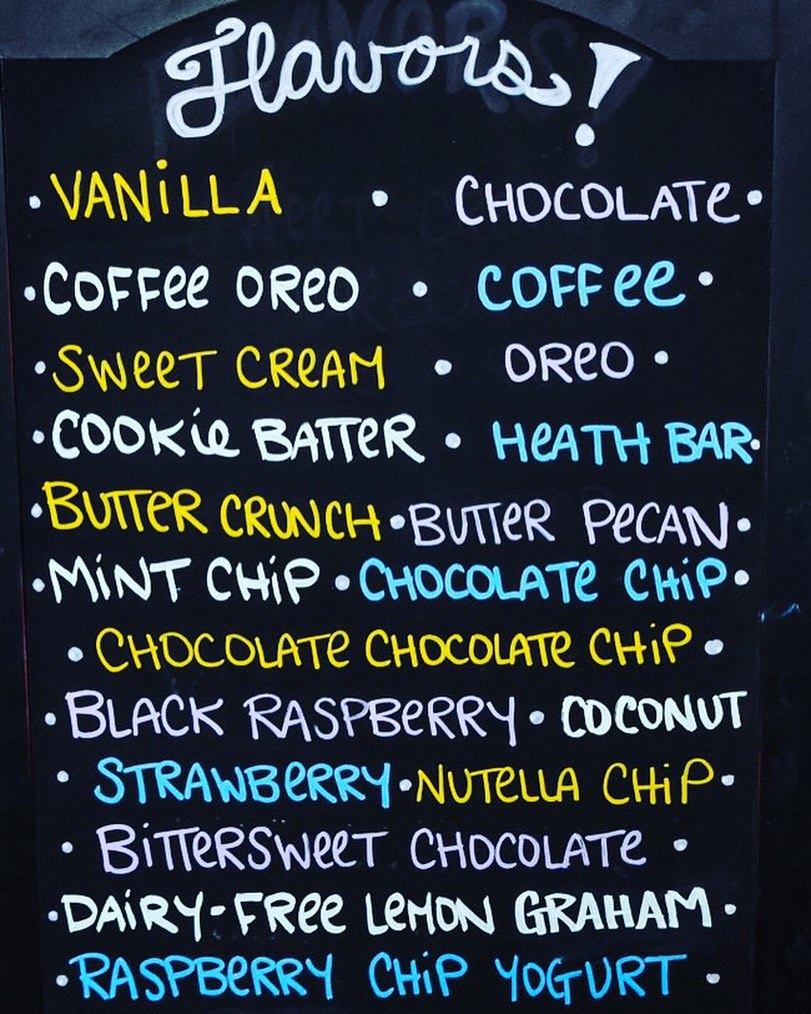 Flavors!
• VANiLLA • CHOCOLATe •
• COFFee OReO • COFFee •
• SWeeT CReAM • OReO •
• COOKie BATTeR • HeATH BAR •
• BUTTeR CRUNCH • BUTTeR PeCAN •
• MiNT CHiP • CHOCOLATe CHiP •
• CHOCOLATe CHOCOLATe CHiP •
• BLACK RASPBeRRY • COCONUT
• STRAWBeRRY • NUTeLLA CHiP •
• BiTTeRSWeeT CHOCOLATe •
• DAiRY-FRee LeMON GRAHAM •
• RASPBeRRY CHiP YOGURT •